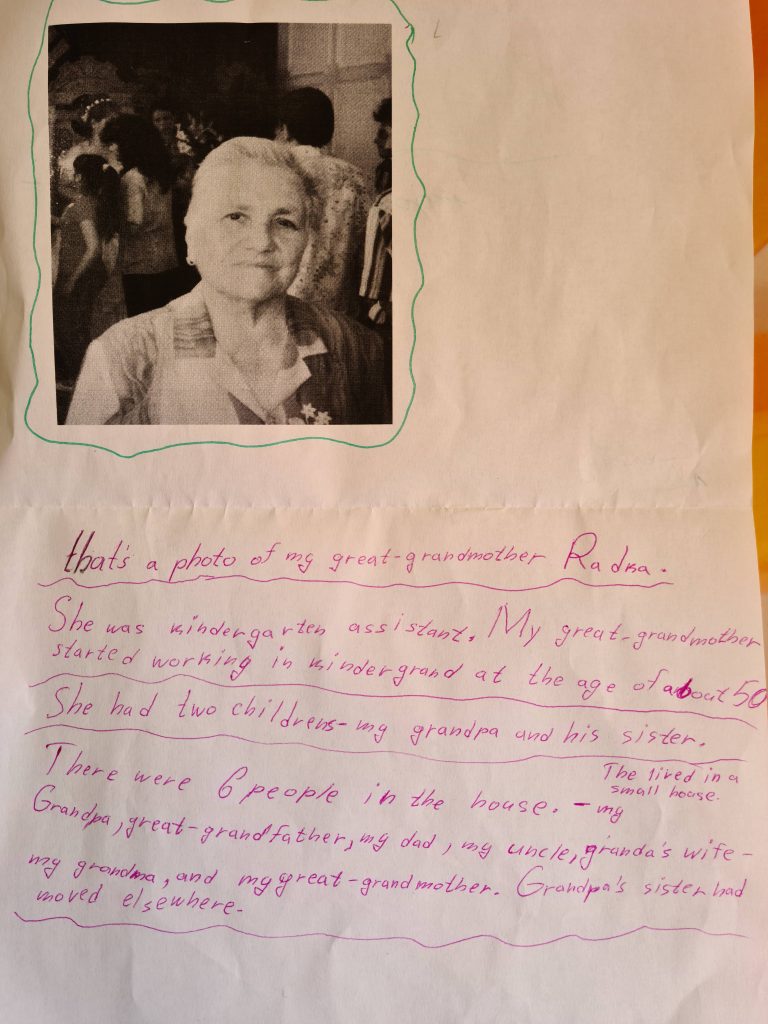 that's a photo of my great-grandmother Radka.
She was kindergarten assistant. My great-grandmother
started working in kindergrand at the age of about 50
She had two childrens-my grandpa and his sister.
There were 6 people in the house. - my
The lived in a
small house.
Grandpa, great-grandfather, my dad, my uncle, granda's wife-
my grandma, and my great-grandmother. Grandpa's sister had
moved elsewhere.